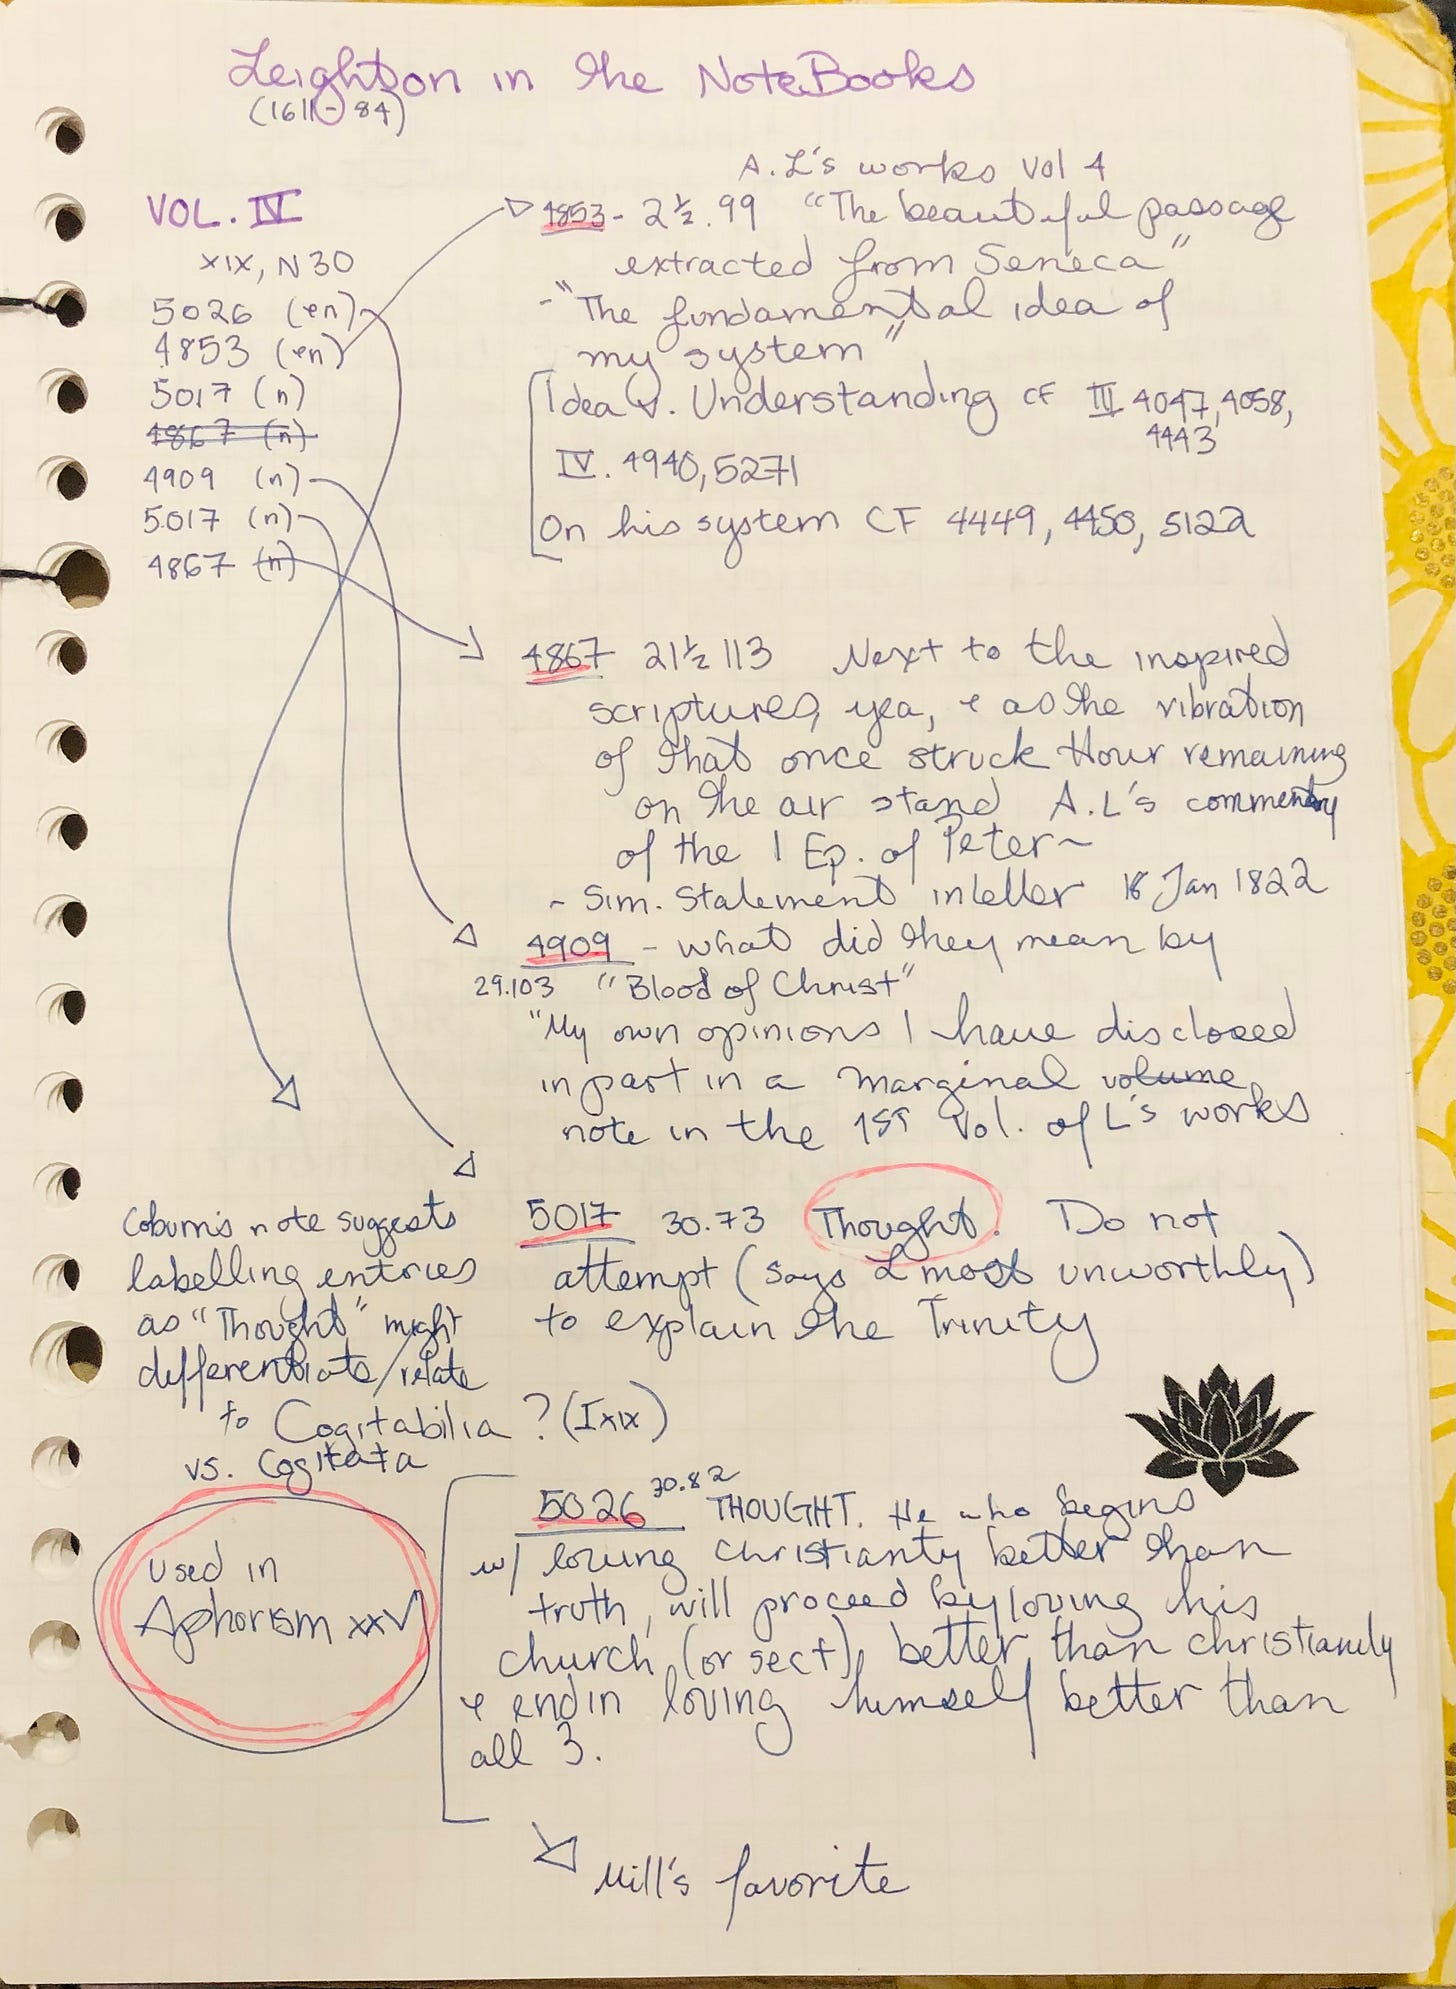 Leighton in the NoteBooks
(1611-84)
VOL. IV
XIX, N30
5026 (en)
4853 (en)
5017 (n)
4867 (n)
4909 (n)
5017 (n)
4867 (n)
A.L's works Vol 4
4853 - 21½.99 "The beautiful passage
extracted from Seneca"
- "The fundamental idea of
my system"
Idea v. Understanding CF III 4047, 4058,
4443
IV. 4940, 5271
On his system CF 4449, 4450, 5122
4867 21½ 113 Next to the inspired
scriptures, yea, & as the vibration
of that once struck Hour remaining
on the air stand A.L's commentary
of the 1 Ep. of Peter~
- Sim. Statement in letter 18 Jan 1822
4909 - what did they mean by
29.103 "Blood of Christ"
"My own opinions I have disclosed
in part in a marginal volume
note in the 1st Vol. of L's works
5017 30.73 Thought. Do not
attempt (says L most unworthly)
to explain the Trinity
Coburn's note suggests
labelling entries
as "Thought" might
differentiate/relate
to Cogitabilia? (Ixix)
vs. Cogitata
used in
Aphorism xxv
5026 30.82 THOUGHT. He who begins
w/ loving christianty better than
truth, will proceed by loving his
church (or sect), better than christianity
& end in loving himself better than
all 3.
Mill's favorite